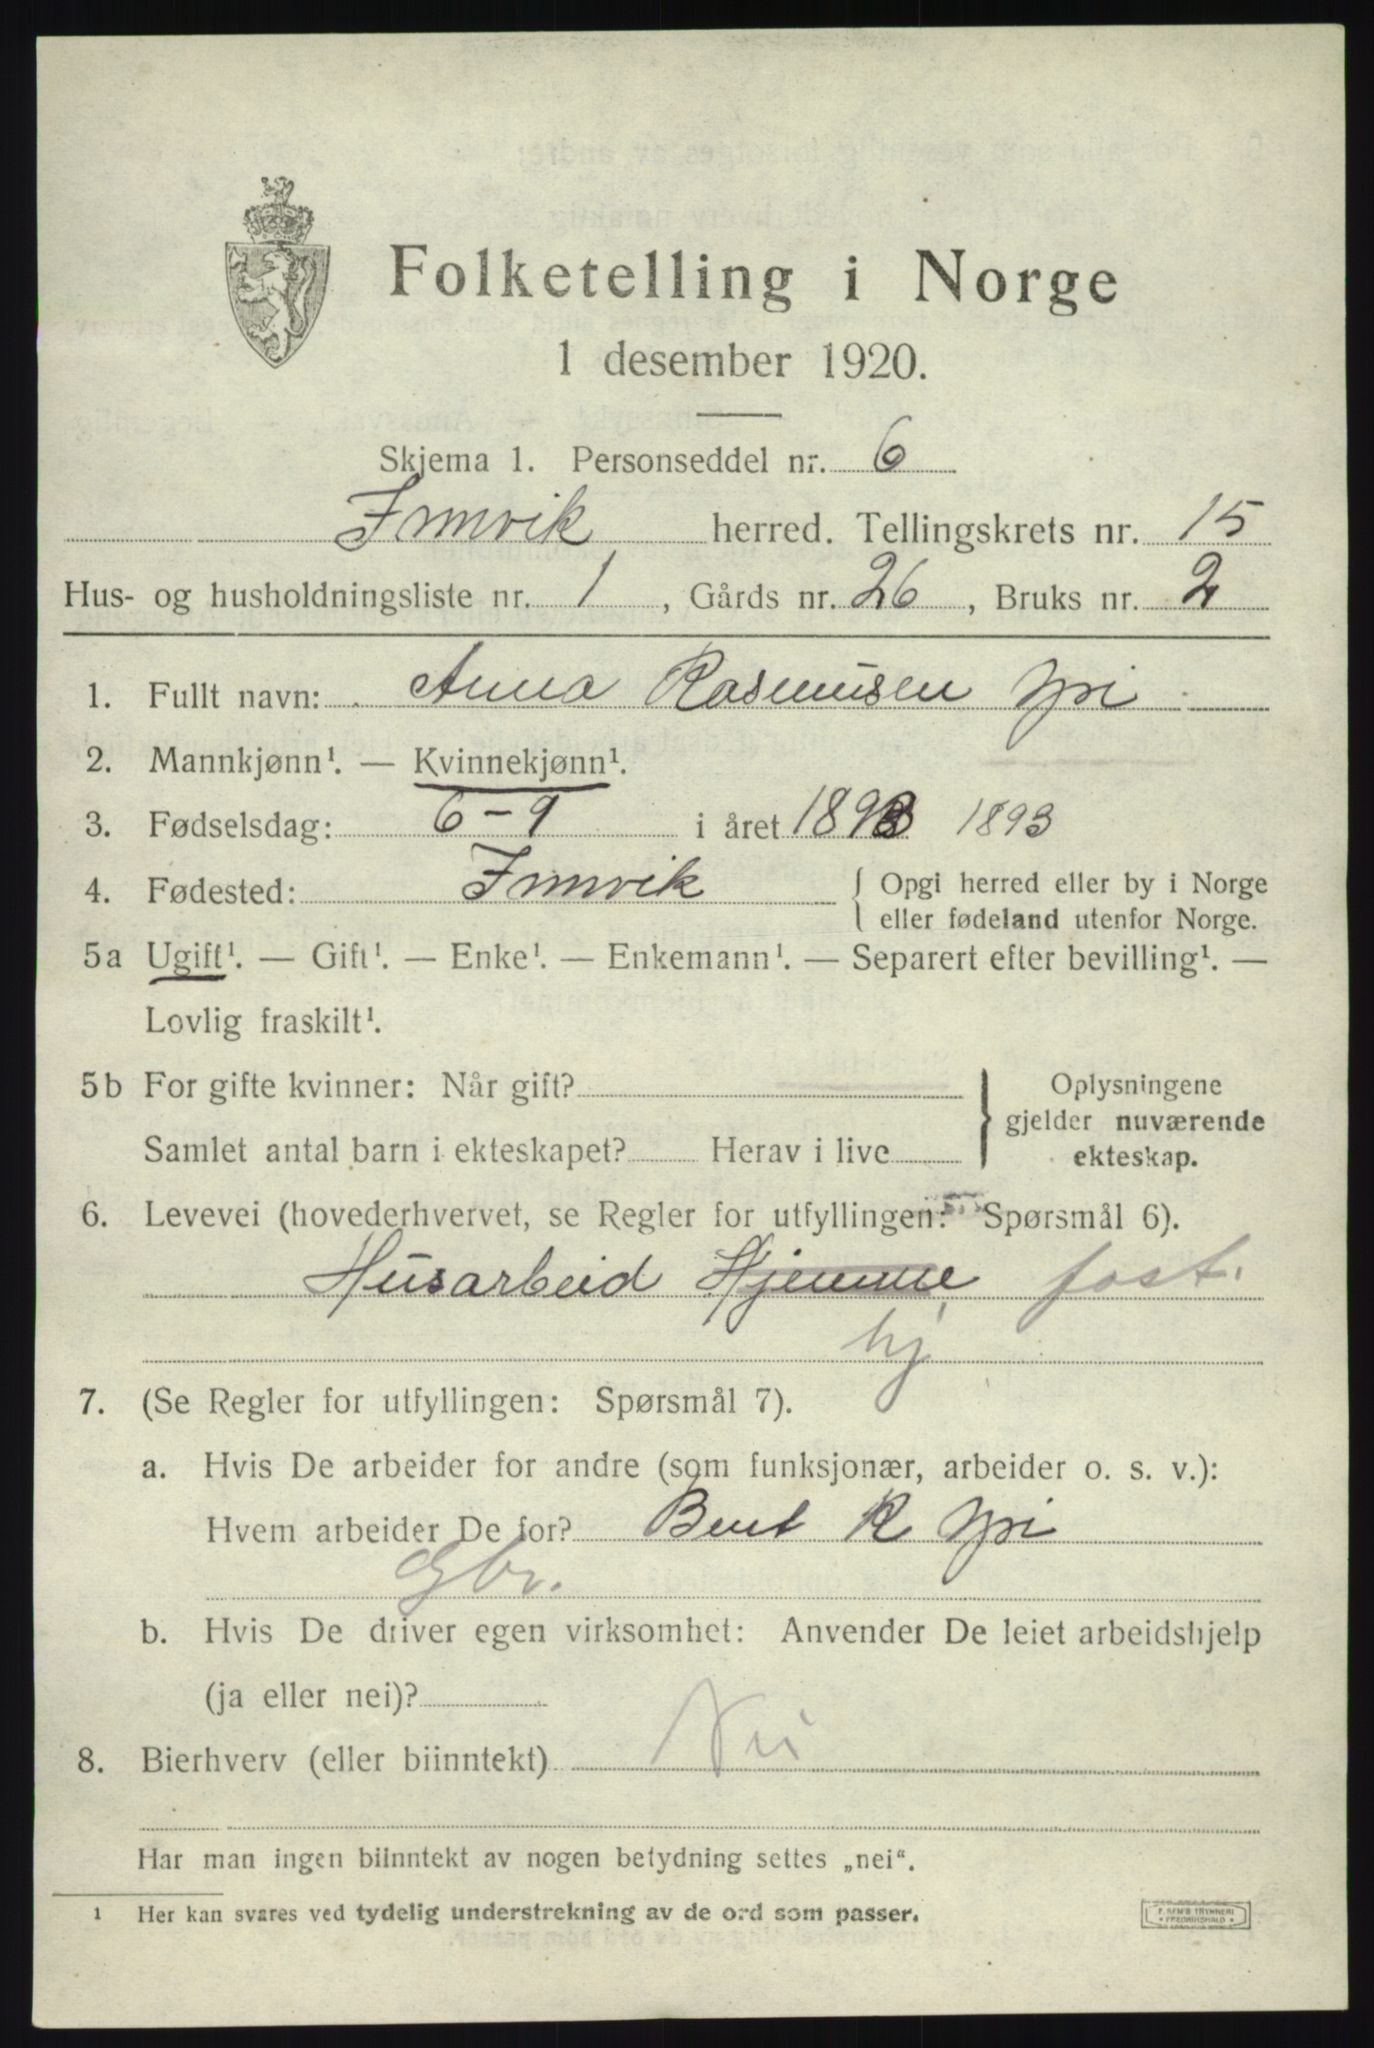 Folketelling i Norge
1 desember 1920.
Skjema 1. Personseddel nr. 6
Innvik herred. Tellingskrets nr. 15
Hus- og husholdningsliste nr. 1, Gårds nr. 26, Bruks nr. 2
1. Fullt navn: Anna Rasmusen Ypri
2. Mannkjønn¹. — Kvinnekjønn¹.
3. Fødselsdag: 6-9 i året 1893 1893
4. Fødested: Innvik { Opgi herred eller by i Norge
eller fødeland utenfor Norge.
5a Ugift¹. — Gift¹. — Enke¹. — Enkemann¹. — Separert efter bevilling¹. —
Lovlig fraskilt¹.
5b For gifte kvinner: Når gift?
Samlet antal barn i ekteskapet? Herav i live
} Oplysningene
gjelder nuværende
ekteskap.
6. Levevei (hovederhvervet, se Regler for utfyllingen: Spørsmål 6).
Husarbeid Hjemme fost.
hj
7. (Se Regler for utfyllingen: Spørsmål 7).
a. Hvis De arbeider for andre (som funksjonær, arbeider o. s. v.):
Hvem arbeider De for? Bent R Ypri
Gbr.
b. Hvis De driver egen virksomhet: Anvender De leiet arbeidshjelp
(ja eller nei)?
8. Bierhverv (eller biinntekt) Nei
Har man ingen biinntekt av nogen betydning settes „nei".
1 Her kan svares ved tydelig understrekning av de ord som passer.